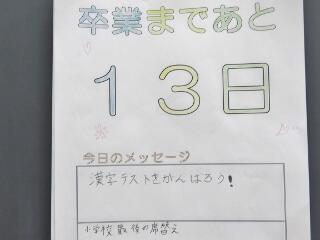 卒業まであと
13日
今日のメッセージ
漢字テストをがんばろう!
小学校最後の席替え